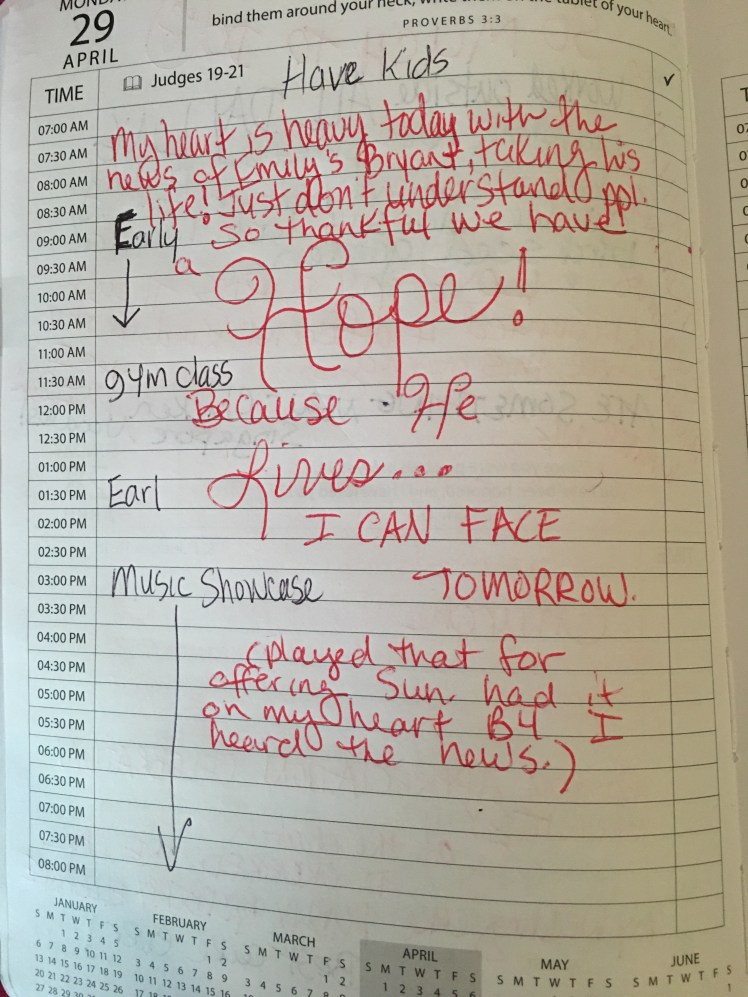 bind them around your neck,
tablet of your heart.
PROVERBS 3:3
29
APRIL
TIME
Judges 19-21
Have Kids
✓
07:00 AM
My heart is heavy today with the
07:30 AM
news of Emily's Bryant, taking his
08:00 AM
life! Just don't understand ppl.
08:30 AM
Early So thankful we have
09:00 AM
a
09:30 AM
Hope!
10:00 AM
10:30 AM
11:00 AM
gym class
11:30 AM
Because He
12:00 PM
12:30 PM
Lives...
01:00 PM
Earl
01:30 PM
I CAN FACE
02:00 PM
02:30 PM
Music Showcase TOMORROW.
03:00 PM
03:30 PM
04:00 PM
(played that for
04:30 PM
offering Sun. had it
05:00 PM
on my heart B4 I
05:30 PM
heard the news.)
06:00 PM
06:30 PM
07:00 PM
07:30 PM
08:00 PM
JANUARY
S M T W T F S
1 2 3 4 5
6 7 8 9 10 11 12
13 14 15 16 17 18 19
20 21 22 23 24 25 26
27 28 29 30
FEBRUARY
S M T W T F S
1 2
3 4 5 6 7 8 9
10 11 12 13 14 15 16
MARCH
S M T W T F S
1 2
3 4 5 6 7 8 9
APRIL
S M T W T F S
1 2 3 4 5 6
MAY
S M T W T F S
JUNE
S M T W T F S
1